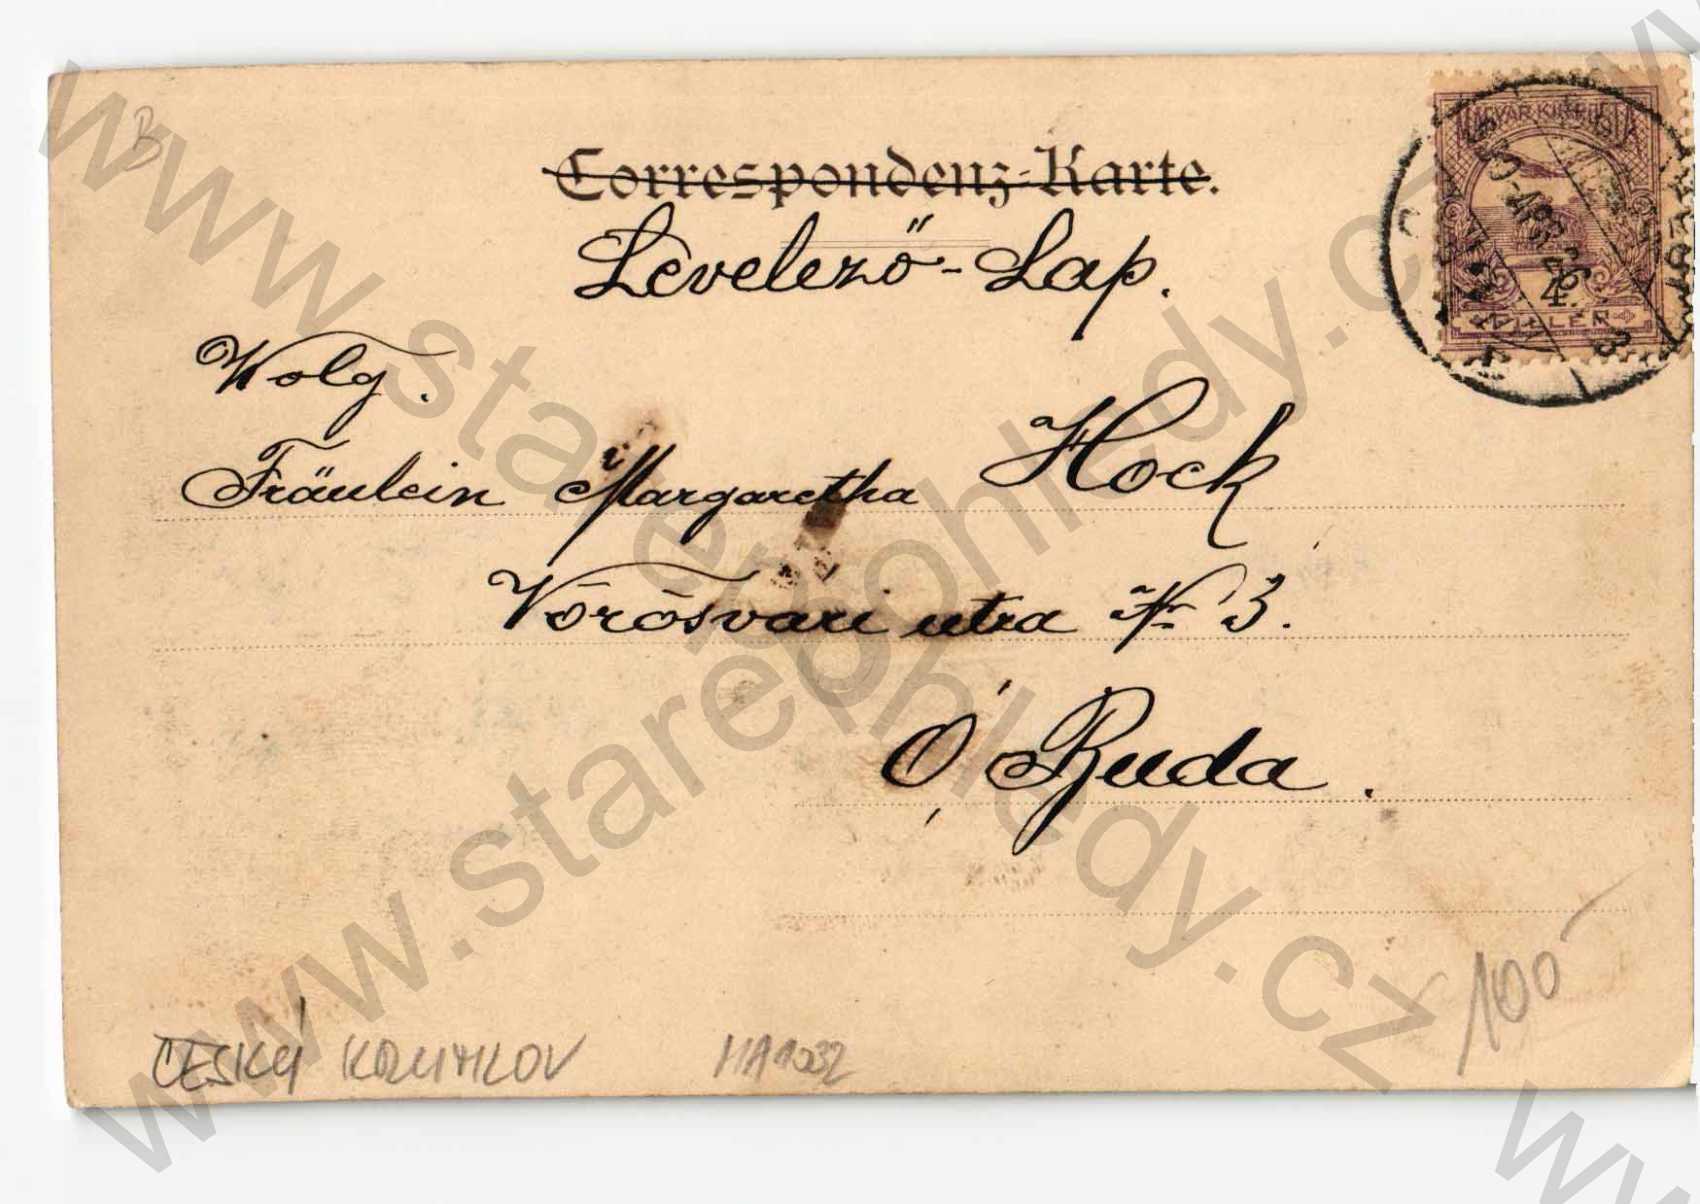 B
Correspondenz-Karte.
Levelező-Lap.
MAGYAR KIR. POSTA
4
FILLÉR
Wolg.
Fräulein Margaretha Hock
Vörösvári utra № 3.
Ó Buda.
100-
ČESKÝ KRUMLOV
www.starepohledy.cz
www.starepohledy.cz